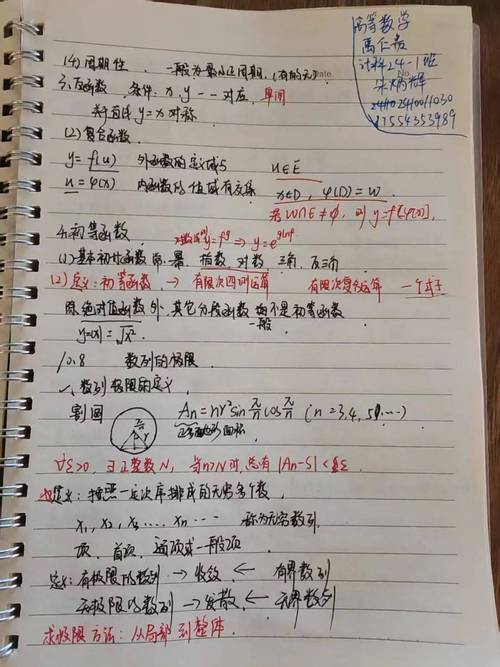 高等数学
计科24-1班
17554353989
(4) 周期性. 一般为最小正周期. (有的无)
3. 反函数. 条件: x, y 一一对应, 单调
关于直线 y=x 对称
(2) 复合函数.
y=f(u) 外函数的定义域与 u∈E
u=φ(x) 内函数的值域有交集 x∈D, φ(D)=W
若 W∩E≠∅, 则 y=f[φ(x)],
4. 初等函数 y=f^g ⇒ y=e^{glnf}
(1) 基本初等函数 幂 指数 对数 三角, 反三角
(2) 定义: 初等函数 → 有限次四则运算 有限次复合运算 一个式子
除绝对值函数外, 其它分段函数 不是初等函数
一般
y=|x|=√x²
10.8 数列的极限
一、数列极限的定义
割圆 An=nr²sin π/n cos π/n (n=3,4,5, ⋯)
正多边形面积
∀ε>0, ∃正整数N, 当n>N时, 总有 |An-S|<ε
定义: 按照一定次序排成的无穷多个数,
x₁, x₂, x₃ ..., xn ⋯ 称为无穷数列
项, 首项, 通项或一般项
定义: 有极限的数列 → 收敛 ← 有界数列
无极限的数列 → 发散 ← 无界数列
求极限方法: 从局部到整体.